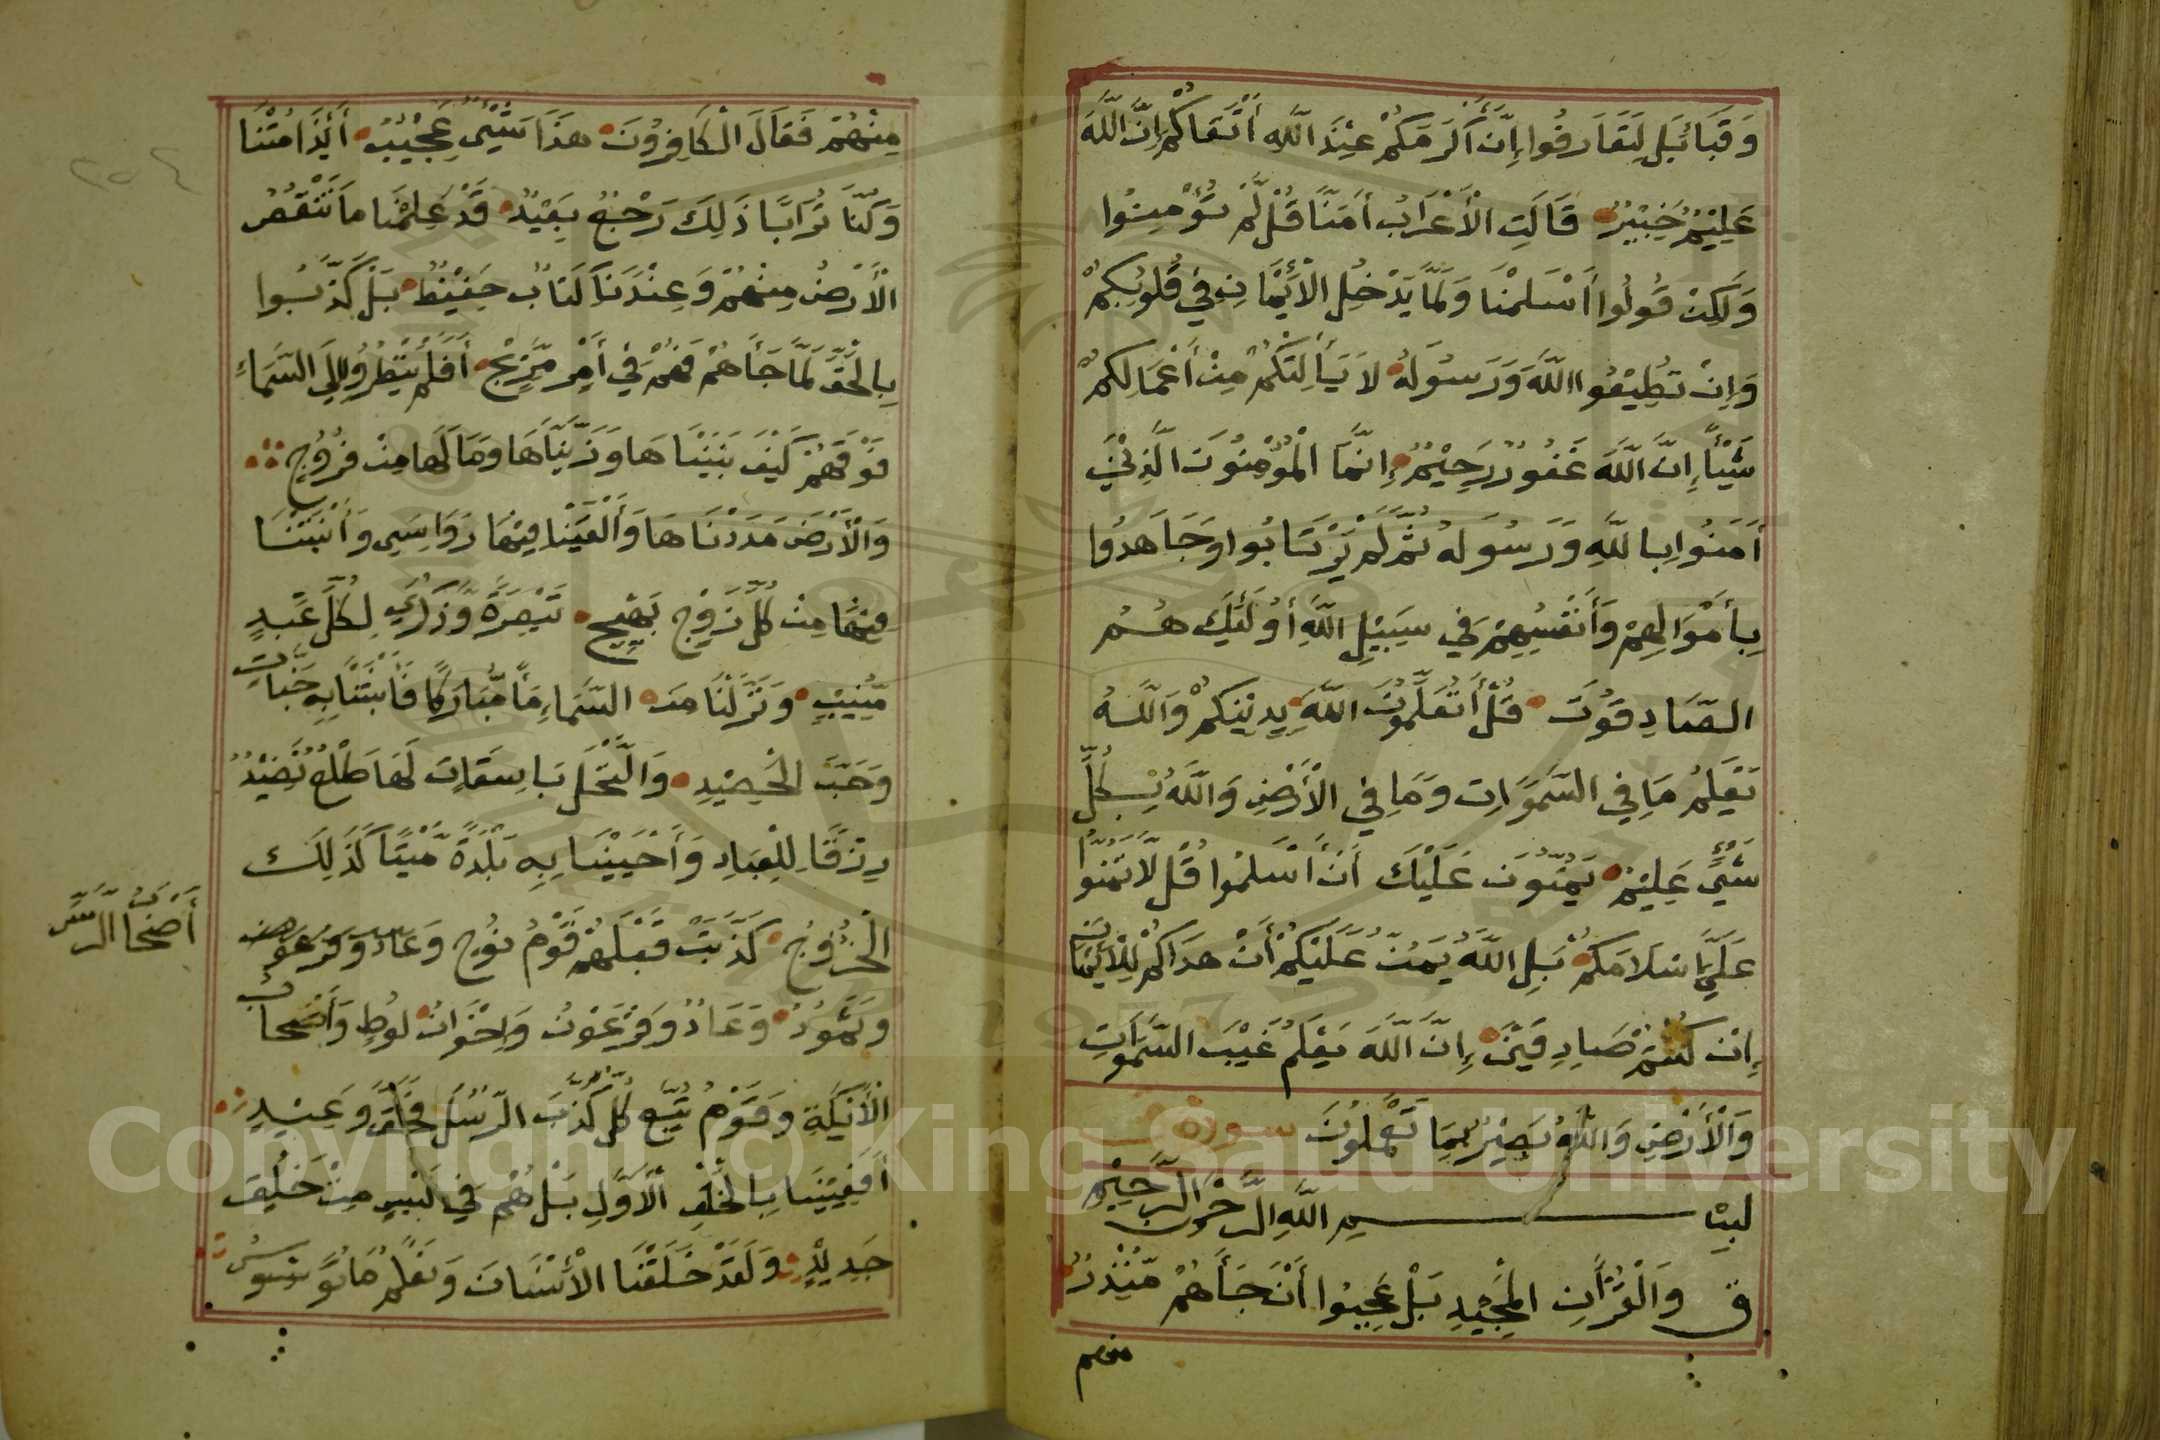 وَقَبَائِلَ لِتَعَارَفُوا إِنَّ أَكْرَمَكُمْ عِنْدَ اللَّهِ أَتْقَاكُمْ إِنَّ اللَّهَ
عَلِيْمٌ خَبِيْرٌ قَالَتِ الْأَعْرَابُ أَمَنَّا قُلْ لَّمْ تُؤْمِنُوا
وَلَكِنْ قُولُوا أَسْلَمْنَا وَلَمَّا يَدْخُلِ الْأِيْمَانِ فِي قُلُوبِكُمْ
وَإِنْ تُطِيْعُوا اللَّهَ وَرَسُولَهُ لَا يَأْلِتْكُمْ مِنْ أَعْمَالِكُمْ
شَيْئًا إِنَّ اللَّهَ غَفُورٌ رَحِيْمٌ إِنَّمَا الْمُؤْمِنُونَ الَّذِيْنَ
أَمَنُوا بِاللَّهِ وَرَسُولِهِ ثُمَّ لَمْ يَرْتَابُوا وَجَاهَدُوا
بِأَمْوَالِهِمْ وَأَنْفُسِهِمْ فِي سَبِيْلِ اللَّهِ أُولَئِكَ هُمُ
الصَّادِقُونَ قُلْ أَتُعَلِّمُونَ اللَّهَ بِدِيْنِكُمْ وَاللَّهُ
يَعْلَمُ مَا فِي السَّمَوَاتِ وَمَا فِي الْأَرْضِ وَاللَّهُ بِكُلِّ
شَيْءٍ عَلِيْمٌ يَمُنُّونَ عَلَيْكَ أَنْ أَسْلَمُوا قُلْ لَّا تَمُنُّوا
عَلَيَّ إِسْلَامَكُمْ بَلِ اللَّهُ يَمُنُّ عَلَيْكُمْ أَنْ هَدَاكُمْ لِلْأِيْمَانِ
إِنْ كُنْتُمْ صَادِقِيْنَ إِنَّ اللَّهَ يَعْلَمُ غَيْبَ السَّمَوَاتِ
وَالْأَرْضِ وَاللَّهُ بَصِيْرٌ بِمَا تَعْمَلُونَ سورة ق
بِسْمِ اللَّهِ الرَّحْمَنِ الرَّحِيْمِ
ق وَالْقُرْأَنِ الْمَجِيْدِ بَلْ عَجِبُوا أَنْ جَأَهُمْ مُنْذِرٌ
منهم
مِنْهُمْ فَقَالَ الْكَافِرُونَ هَذَا شَيْءٌ عَجِيْبٌ أَئِذَا مِتْنَا
وَكُنَّا تُرَابًا ذَلِكَ رَجْعٌ بَعِيْدٌ قَدْ عَلِمْنَا مَا تَنْقُصُ
الْأَرْضُ مِنْهُمْ وَعِنْدَنَا كِتَابٌ حَفِيْظٌ بَلْ كَذَّبُوا
بِالْحَقِّ لَمَّا جَأَهُمْ فَهُمْ فِي أَمْرٍ مَّرِيْجٍ أَفَلَمْ يَنْظُرُوا إِلَى السَّمَاءِ
فَوْقَهُمْ كَيْفَ بَنَيْنَاهَا وَزَيَّنَّاهَا وَمَا لَهَا مِنْ فُرُوجٍ
وَالْأَرْضَ مَدَدْنَاهَا وَأَلْقَيْنَا فِيْهَا رَوَاسِيَ وَأَنْبَتْنَا
فِيْهَا مِنْ كُلِّ زَوْجٍ بَهِيْجٍ تَبْصِرَةً وَّذِكْرَى لِكُلِّ عَبْدٍ
مُّنِيْبٍ وَنَزَّلْنَا مِنَ السَّمَاءِ مَأً مُّبَارَكًا فَأَنْبَتْنَا بِهِ جَنَّاتٍ
وَحَبَّ الْحَصِيْدِ وَالنَّخْلَ بَاسِقَاتٍ لَهَا طَلْعٌ نَضِيْدٌ
رِزْقًا لِلْعِبَادِ وَأَحْيَيْنَا بِهِ بَلْدَةً مَّيْتًا كَذَلِكَ
الْخُرُوجُ كَذَّبَتْ قَبْلَهُمْ قَوْمُ نُوحٍ وَعَادٌ وَفِرْعَوْنُ
أَصْحَابُ الرَّسِّ
وَثَمُودُ وَعَادٌ وَفِرْعَوْنُ وَإِخْوَانُ لُوطٍ وَأَصْحَابُ
الْأَيْكَةِ وَقَوْمُ تُبَّعٍ كُلٌّ كَذَّبَ الرُّسُلَ فَحَقَّ وَعِيْدِ
أَفَعِيْيْنَا بِالْخَلْقِ الْأَوَّلِ بَلْ هُمْ فِي لَبْسٍ مِنْ خَلْقٍ
جَدِيْدٍ وَلَقَدْ خَلَقْنَا الْأِنْسَانَ وَنَعْلَمُ مَا تُوَسْوِسُ
Copyright © King Saud University